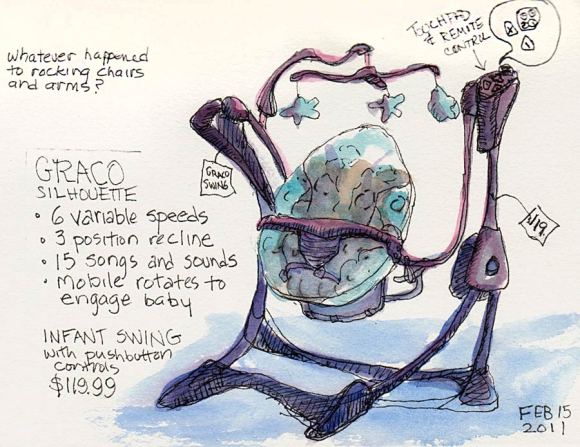 Whatever happened
to rocking chairs
and arms?
TOUCHPAD
& REMOTE
CONTROL
GRACO
SILHOUETTE
• 6 variable speeds
• 3 position recline
• 15 songs and sounds
• mobile rotates to
engage baby
INFANT SWING
with pushbutton
controls
$119.99
GRACO
SWING
119.
FEB 15
2011